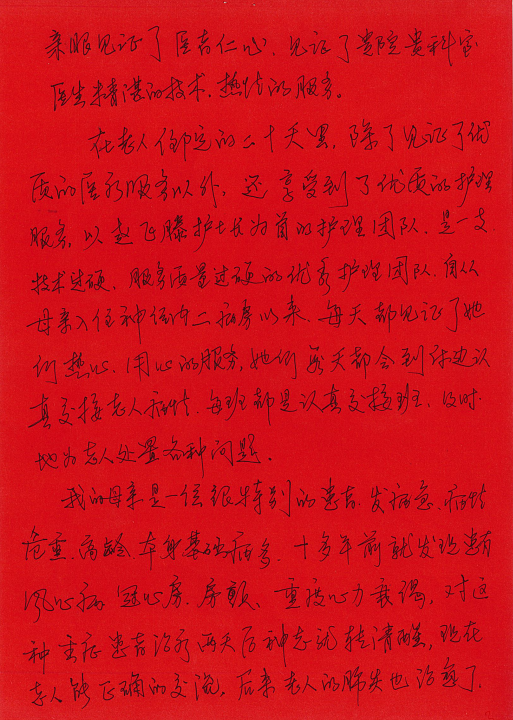 亲眼见证了医者仁心、见证了贵院贵科室
医生精湛的技术、热情的服务。
在老人住院的二十天里,除了见证了优
质的医疗服务以外,还享受到了优质的护理
服务,以赵飞滕护士长为首的护理团队,是一支
技术过硬、服务质量过硬的优秀护理团队,自从
母亲入住神经内二病房以来,每天都见证了她
们热心、用心的服务,她们每天都会到床边认
真交接老人病情,每班都是认真交接班,及时
地为老人处置各种问题。
我的母亲是一位很特别的患者,发病急、病情
危重、高龄、本身基础病多,十多年前就发现患有
风心病、冠心病、房颤、重度心力衰竭,对这
种重症患者治疗两天后神志就转清醒,现在
老人能正确的交流,后来老人的肺炎也治愈了,